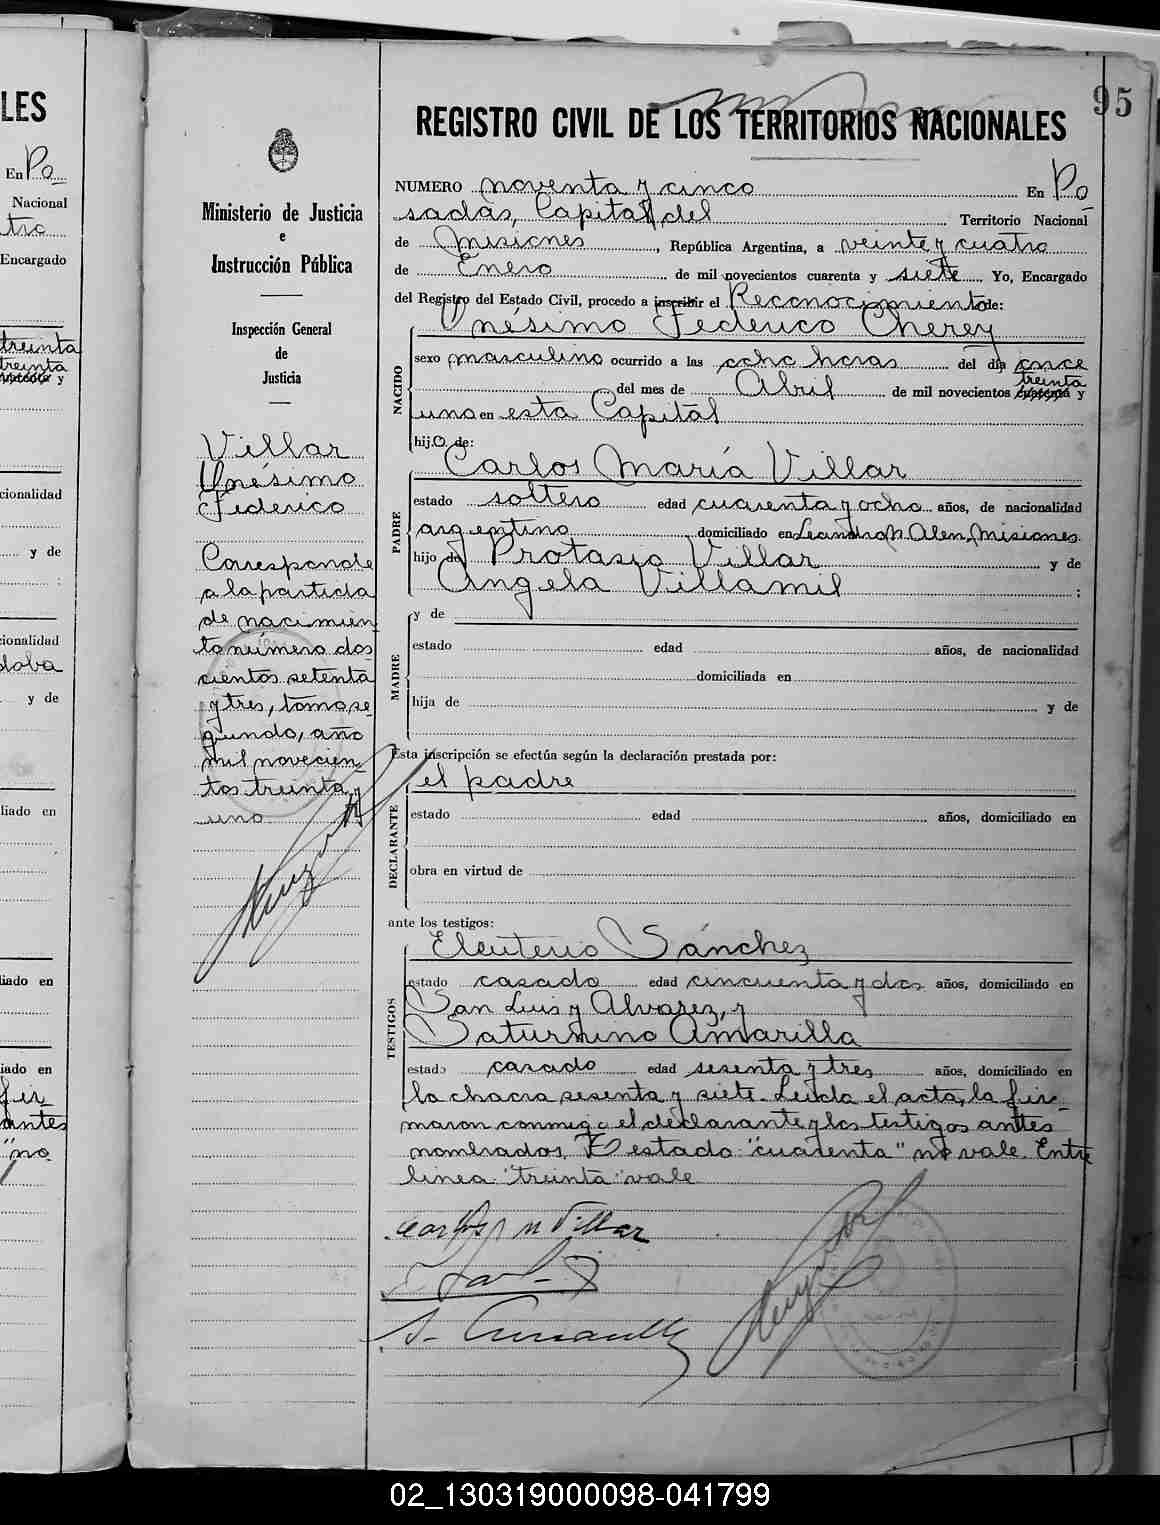 LES
En Po
Nacional
tro
Encargado
treinta
treinta
y
cionalidad
y de
cionalidad
doba
y de
liado en
liado en
iado en
fir
antes
"no
95
REGISTRO CIVIL DE LOS TERRITORIOS NACIONALES
Ministerio de Justicia
e
Instrucción Pública
Inspección General
de
Justicia
Villar
Onésimo
Federico
Corresponde
a la partida
de nacimien
to número dos
cientos setenta
y tres, tomo se
gundo, año
mil novecien
tos treinta y
uno
NUMERO noventa y cinco En Po
sadas, Capital del Territorio Nacional
de Misiones, República Argentina, a veinte y cuatro
de Enero de mil novecientos cuarenta y siete. Yo, Encargado
del Registro del Estado Civil, procedo a inscribir el Reconocimiento de:
Onésimo Federico Cherey
NACIDO
sexo masculino ocurrido a las ocho horas del día once
treinta
del mes de Abril de mil novecientos cuarenta y
uno en esta Capital
hijo de:
Carlos María Villar
PADRE
estado soltero edad cuarenta y ocho años, de nacionalidad
argentino domiciliado en Leandro N. Alen, Misiones
hijo de Protasio Villar y de
Angela Villamil ;
MADRE
y de
estado edad años, de nacionalidad
domiciliada en
hija de y de
Esta inscripción se efectúa según la declaración prestada por:
el padre
DECLARANTE
estado edad años, domiciliado en
obra en virtud de
ante los testigos:
Eleuterio Sánchez
TESTIGOS
estado casado edad cincuenta y dos años, domiciliado en
San Luis y Alvarez, y
Saturnino Amarilla
estado casado edad sesenta y tres años, domiciliado en
la chacra sesenta y siete. Leída el acta, la fir-
maron conmigo el declarante y los testigos antes
nombrados. Testado "cuarenta" no vale. Entre
linea "treinta" vale
Carlos M Villar
02_130319000098-041799